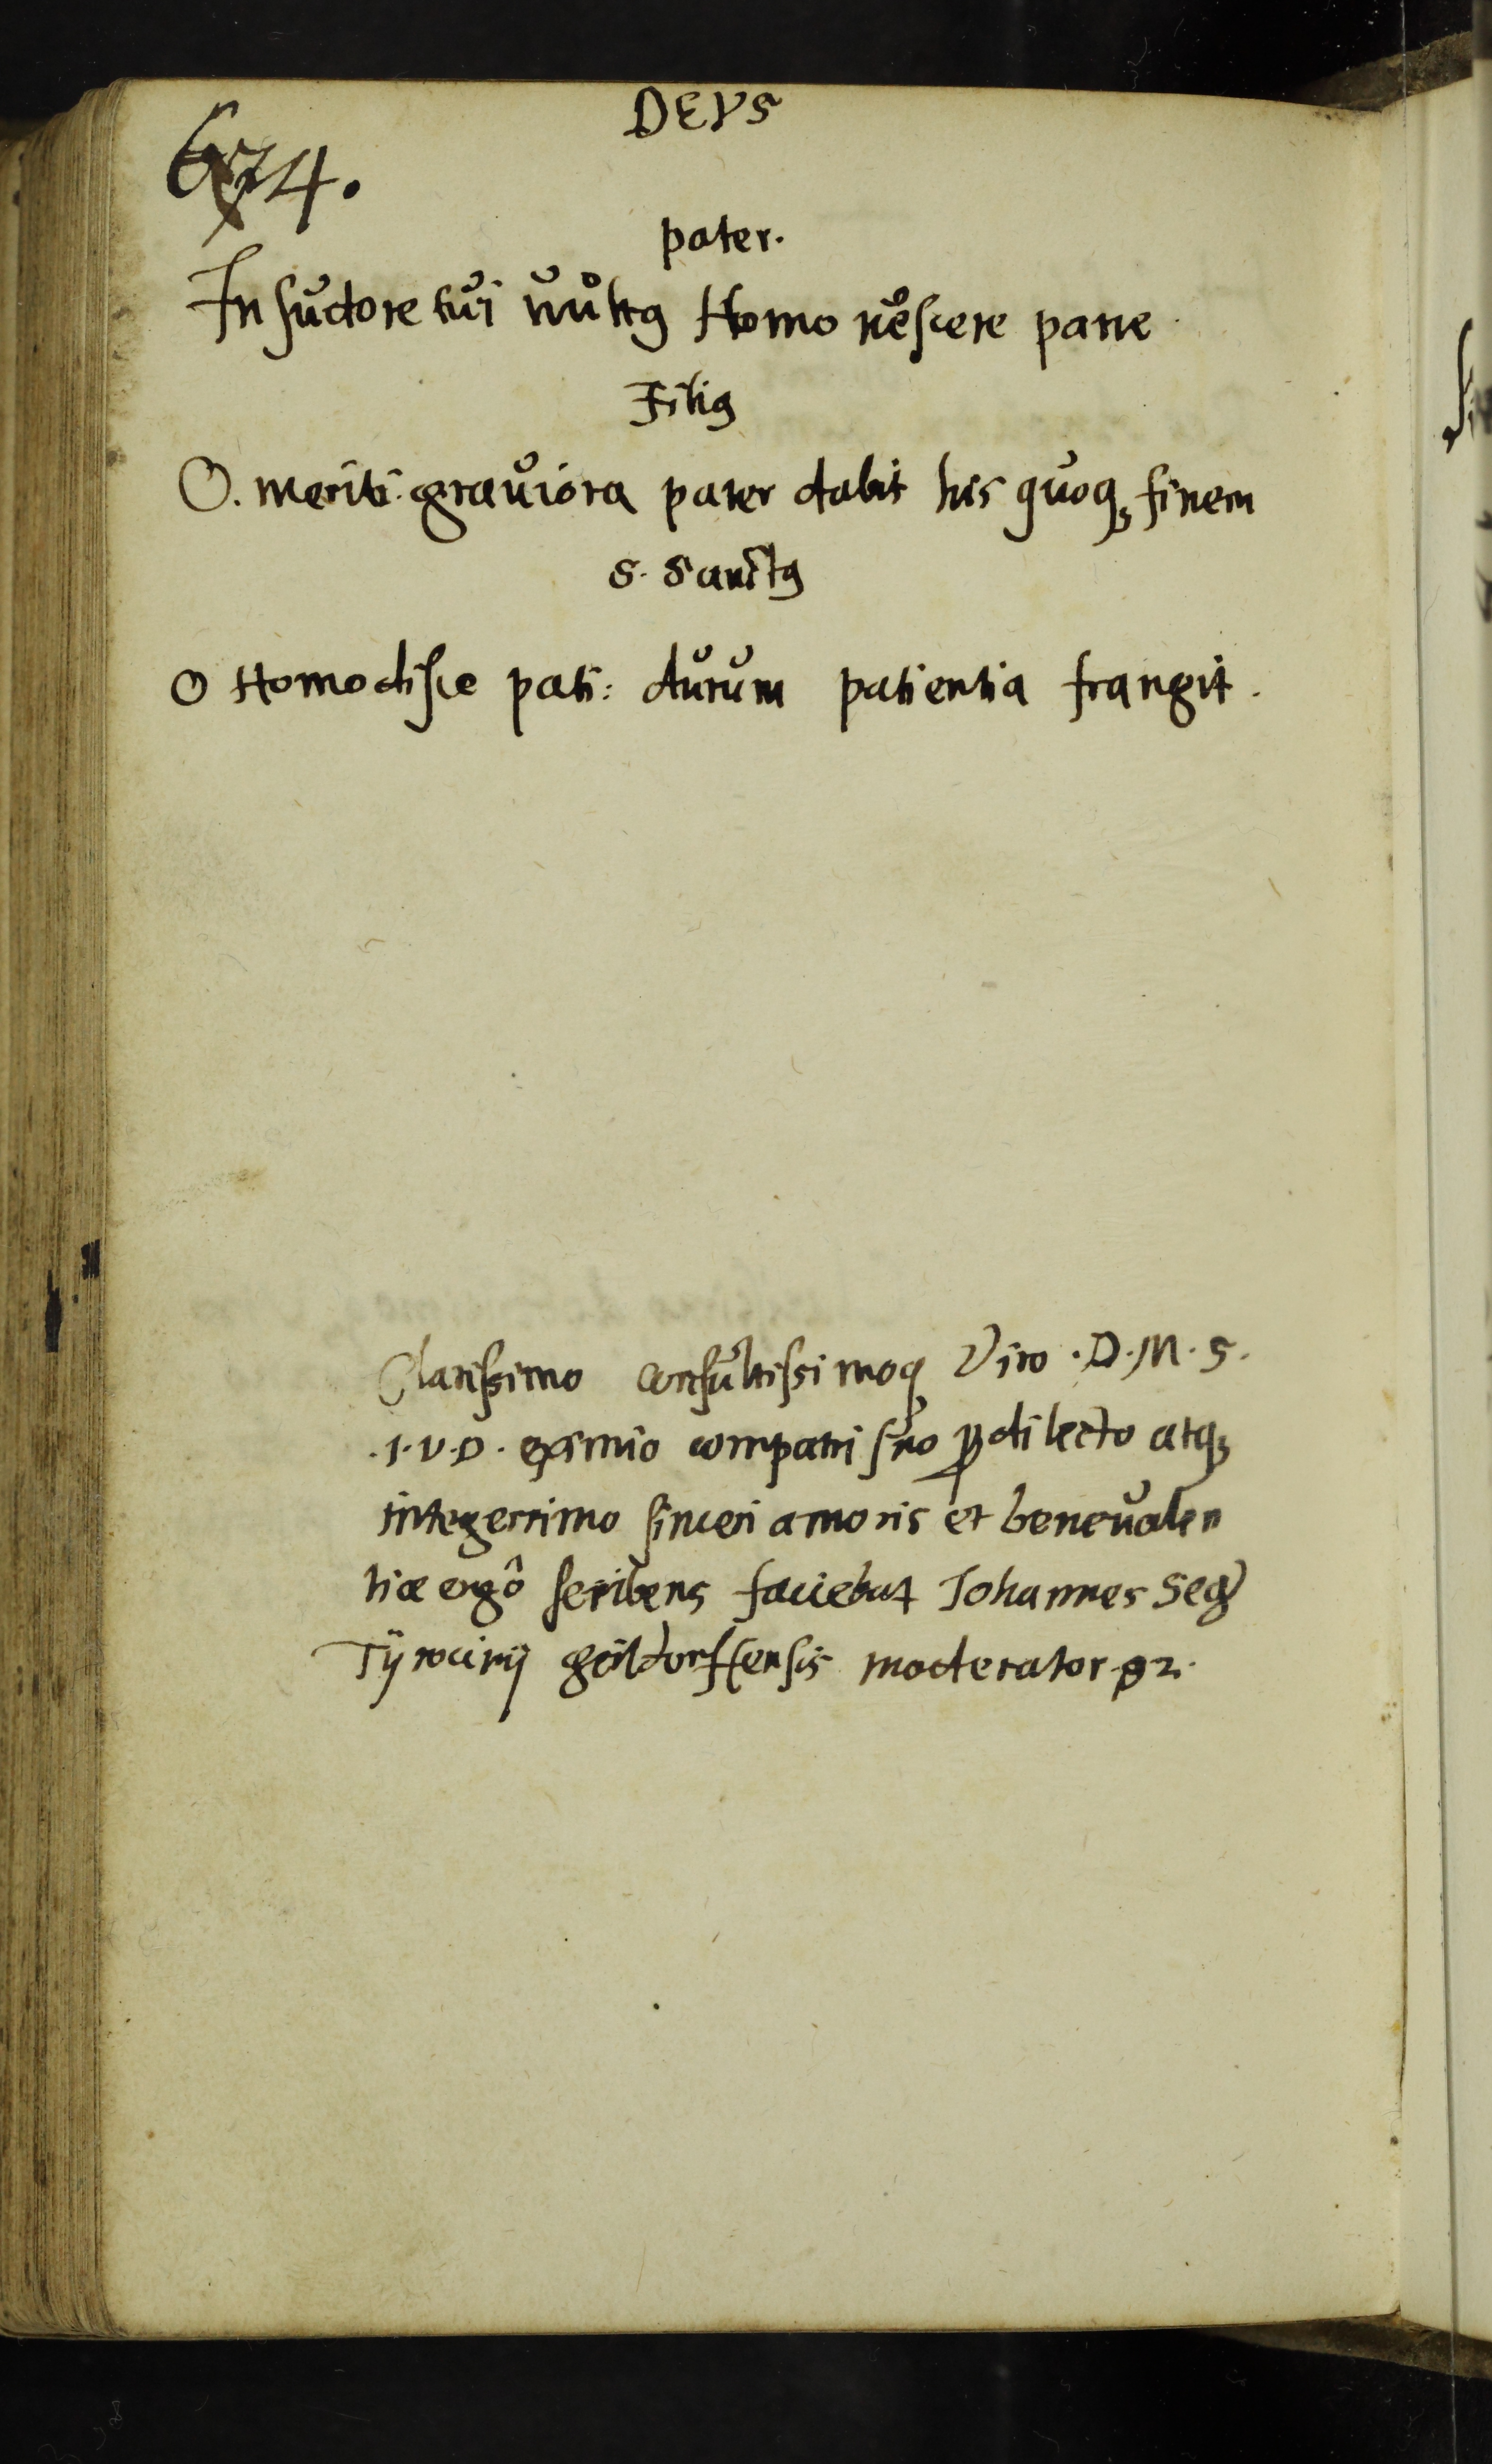 DEVS
674.
pater.
In sudore tui vultꝰ Homo vescere pane.
Filiꝰ
O. meriti. graviora pater dabit his quoqꝫ finem
S. Sanctꝰ
O Homo disce pati: durum patientia frangit.
Clarissimo consultissimoqꝫ Viro. D. M. S.
.I. V. D. eximio compatri suo p̱dilecto atqꝫ
integerrimo sinceri amoris et benevolen
tiæ ergô scribens faciebat Johannes Seg
Tÿrocinij geildorffensis moderator 92.